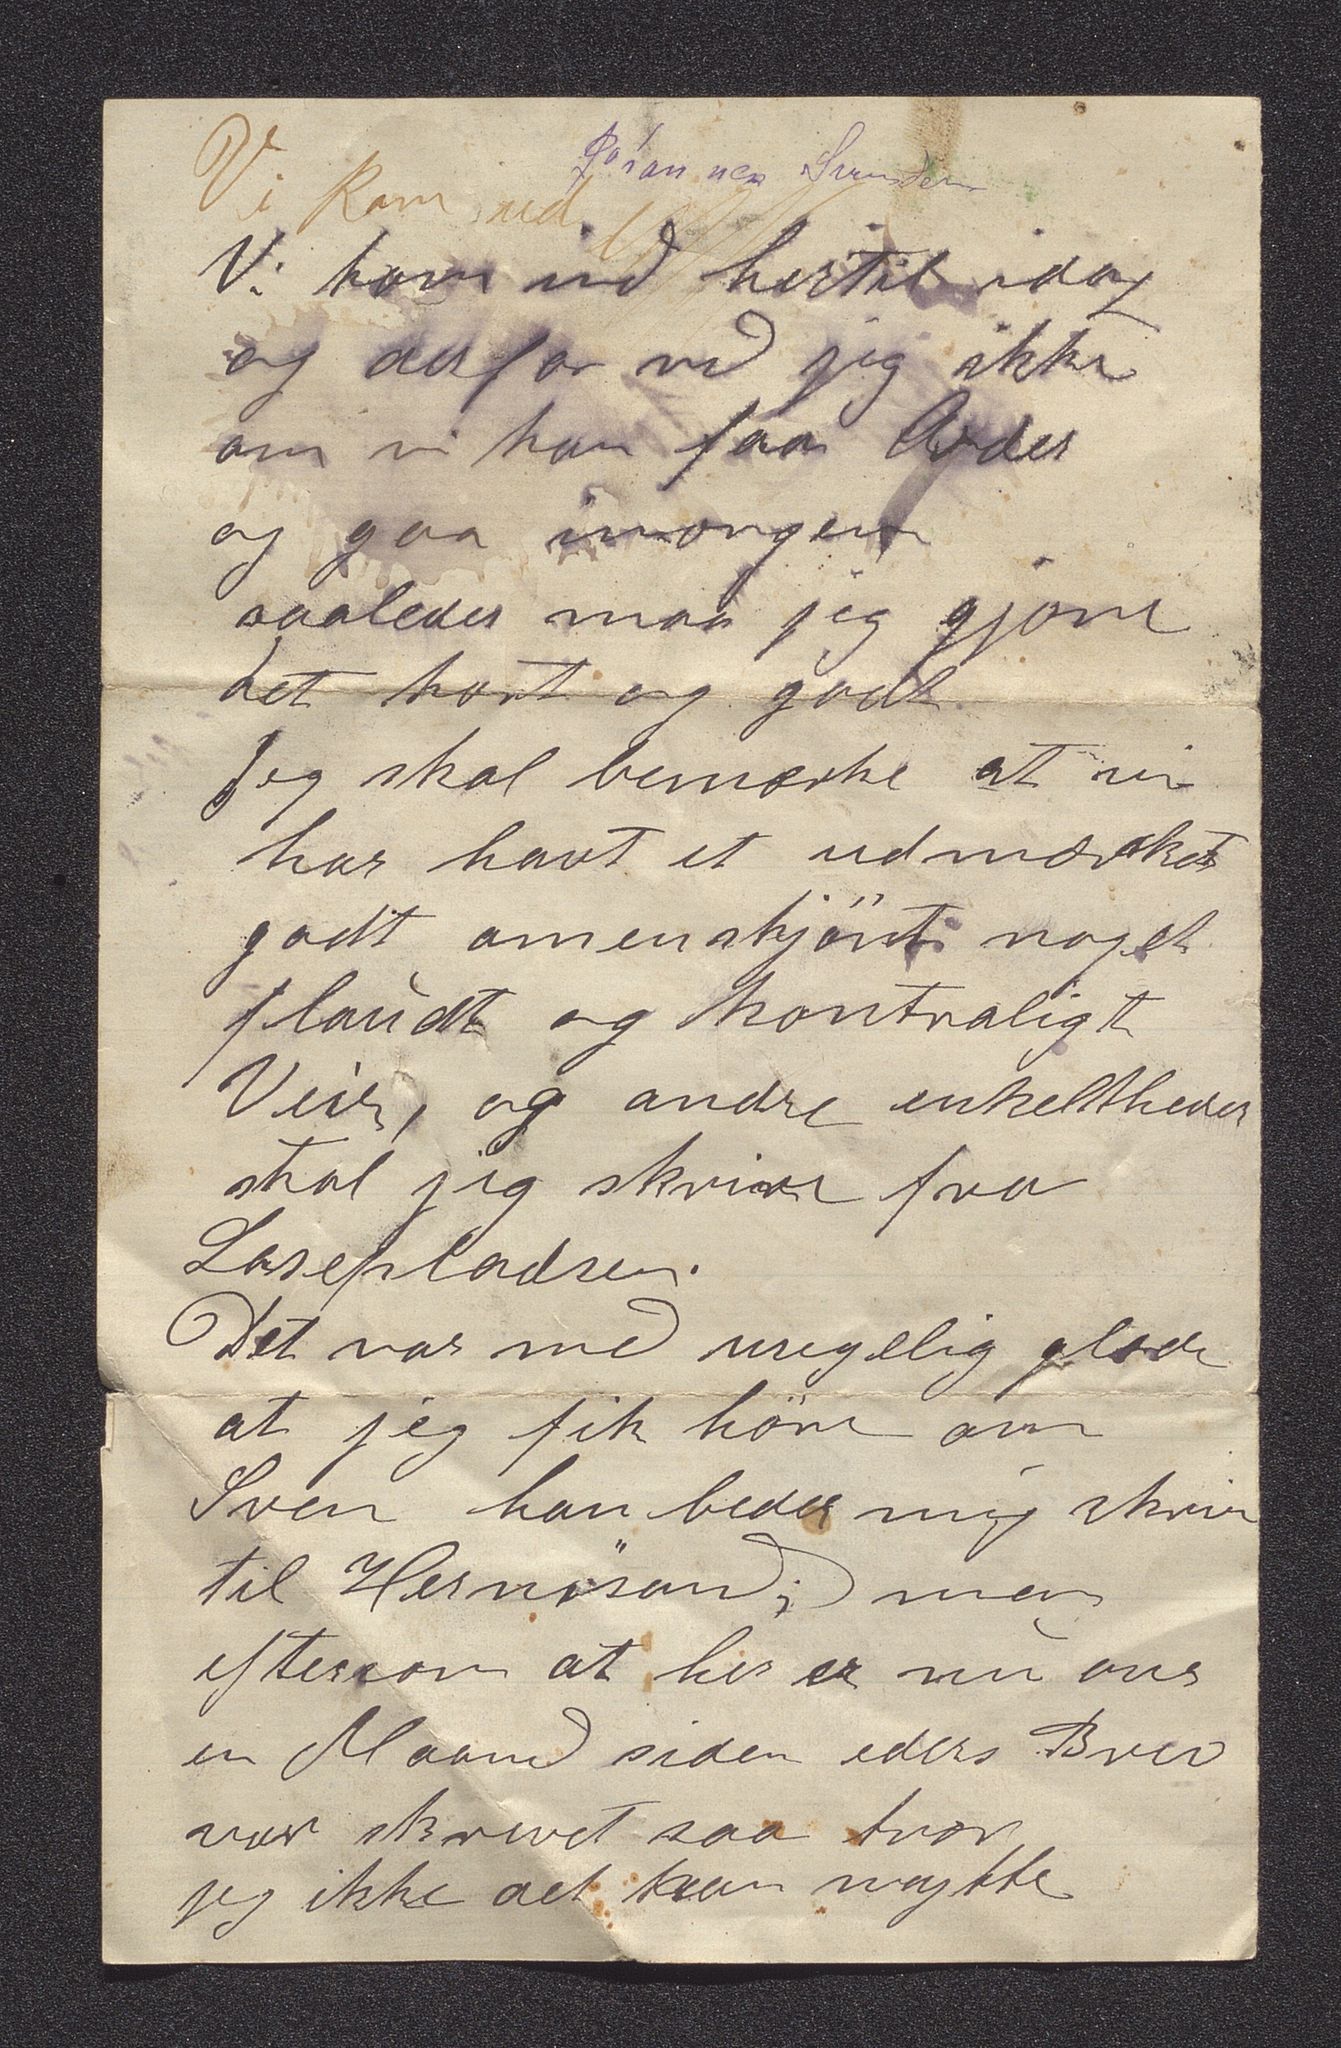 Vi kom ind
Johannes
Vi kom ind hertil idag
og derfor ved jeg ikke
om vi kan faa Order
og gaa imorgen
saaledes maa jeg gjøre
det kort og godt.
Jeg skal bemærke at vi
har havt et udmærket
godt omenskjönt noget
flaùdt og kontraligt
Veir, og andre enkeltheder
skal jeg skrive fra
Losepladsen.
Det var med usigelig glæde
at jeg fik höre om
Sven han beder mig skrive
til Hernösand; men
eftersom at her er nù over
en Maaned siden eders Brev
var skrevet saa tror
jeg ikke det kan nøytte